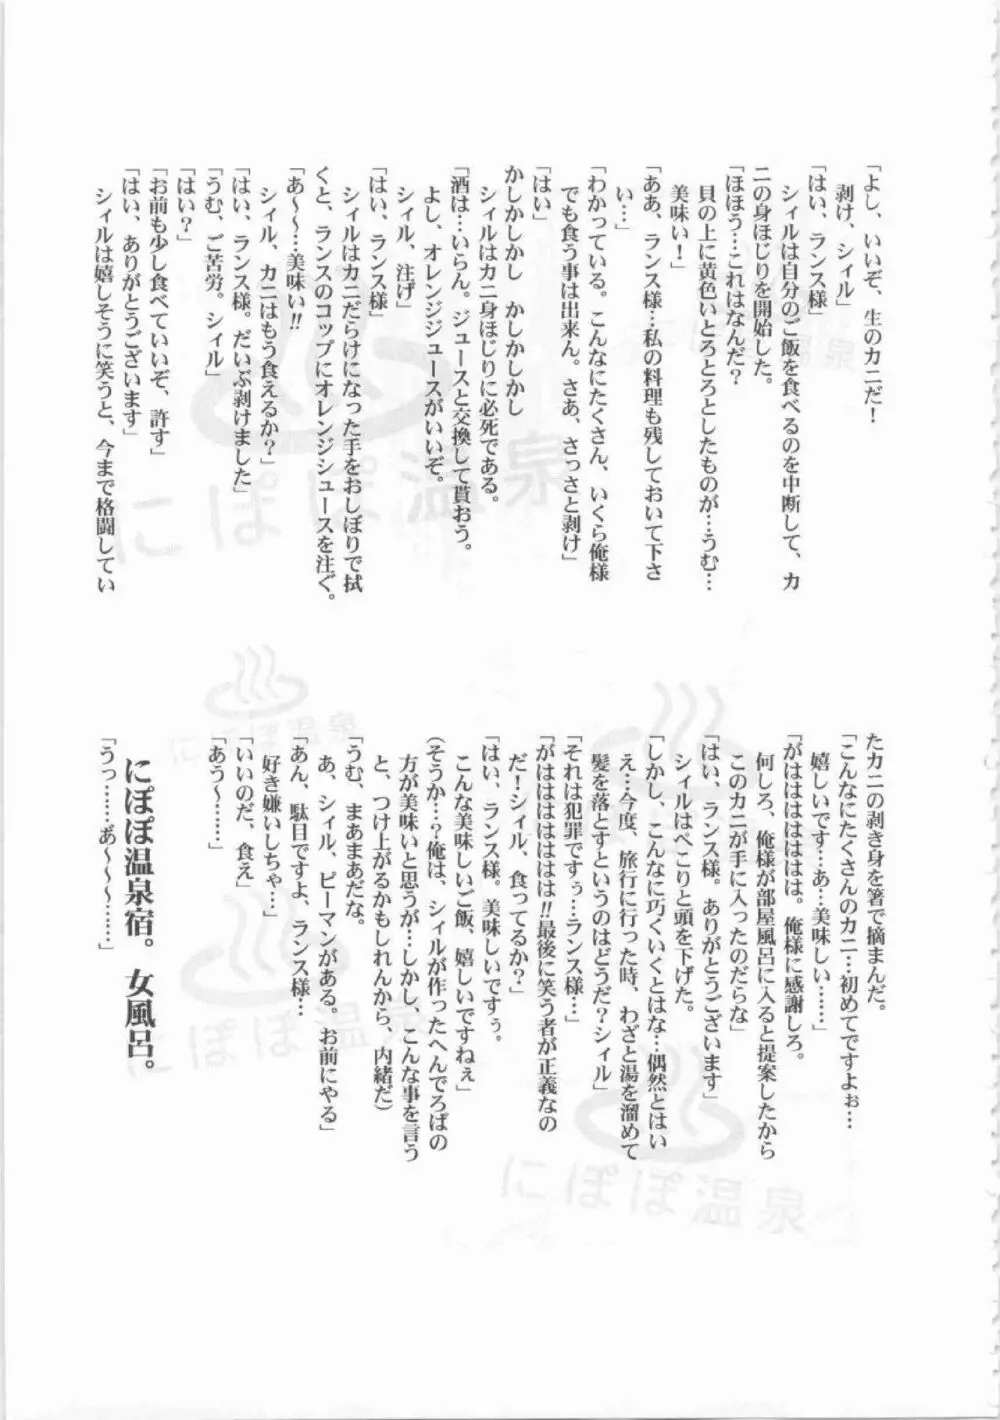 「よし、いいぞ、生のカニだ！
剥け、シィル」
「はい、ランス様」
シィルは自分のご飯を食べるのを中断して、カ
ニの身ほじりを開始した。
「ほほう…これはなんだ？
貝の上に黄色いとろとろとしたものが…うむ…
美味い！」
「ああ、ランス様…私の料理も残しておいて下さ
い…」
「わかっている。こんなにたくさん、いくら俺様
でも食う事は出来ん。さあ、さっさと剥け」
「はい」
かしかしかし　かしかしかし
シィルはカニ身ほじりに必死である。
「酒は…いらん。ジュースと交換して貰おう。
よし、オレンジジュースがいいぞ。
シィル、注げ」
「はい、ランス様」
シィルはカニだらけになった手をおしぼりで拭
くと、ランスのコップにオレンジシュースを注ぐ。
「あ～～…美味い!!
シィル、カニはもう食えるか？」
「はい、ランス様。だいぶ剥けました」
「うむ、ご苦労。シィル」
「はい？」
「お前も少し食べていいぞ、許す」
「はい、ありがとうございます」
シィルは嬉しそうに笑うと、今まで格闘してい
たカニの剥き身を箸で摘まんだ。
「こんなにたくさんのカニ…初めてですよぉ…
嬉しいです…あ…美味しい……」
「がはははははは。俺様に感謝しろ。
何しろ、俺様が部屋風呂に入ると提案したから
このカニが手に入ったのだらな」
「はい、ランス様。ありがとうございます」
シィルはぺこりと頭を下げた。
「しかし、こんなに巧くいくとはな…偶然とはい
え…今度、旅行に行った時、わざと湯を溜めて
髪を落とすというのはどうだ？シィル」
「それは犯罪ですぅ…ランス様…」
「がはははははははは!!最後に笑う者が正義なの
だ！シィル、食ってるか？」
「はい、ランス様。美味しいですぅ。
こんな美味しいご飯、嬉しいですねぇ」
(そうか…？俺は、シィルが作ったへんでろぱの
方が美味いと思うが…しかし、こんな事を言う
と、つけ上がるかもしれんから、内緒だ)
「うむ、まあまあだな。
あ、シィル、ピーマンがある。お前にやる」
「あん、駄目ですよ、ランス様…
好き嫌いしちゃ…」
「いいのだ、食え」
「あう～……」
にぽぽ温泉宿。　女風呂。
「うっ……あ゛～～～……」
にぽぽ温泉
にぽぽ温泉
にぽぽ温泉
にぽぽ温泉